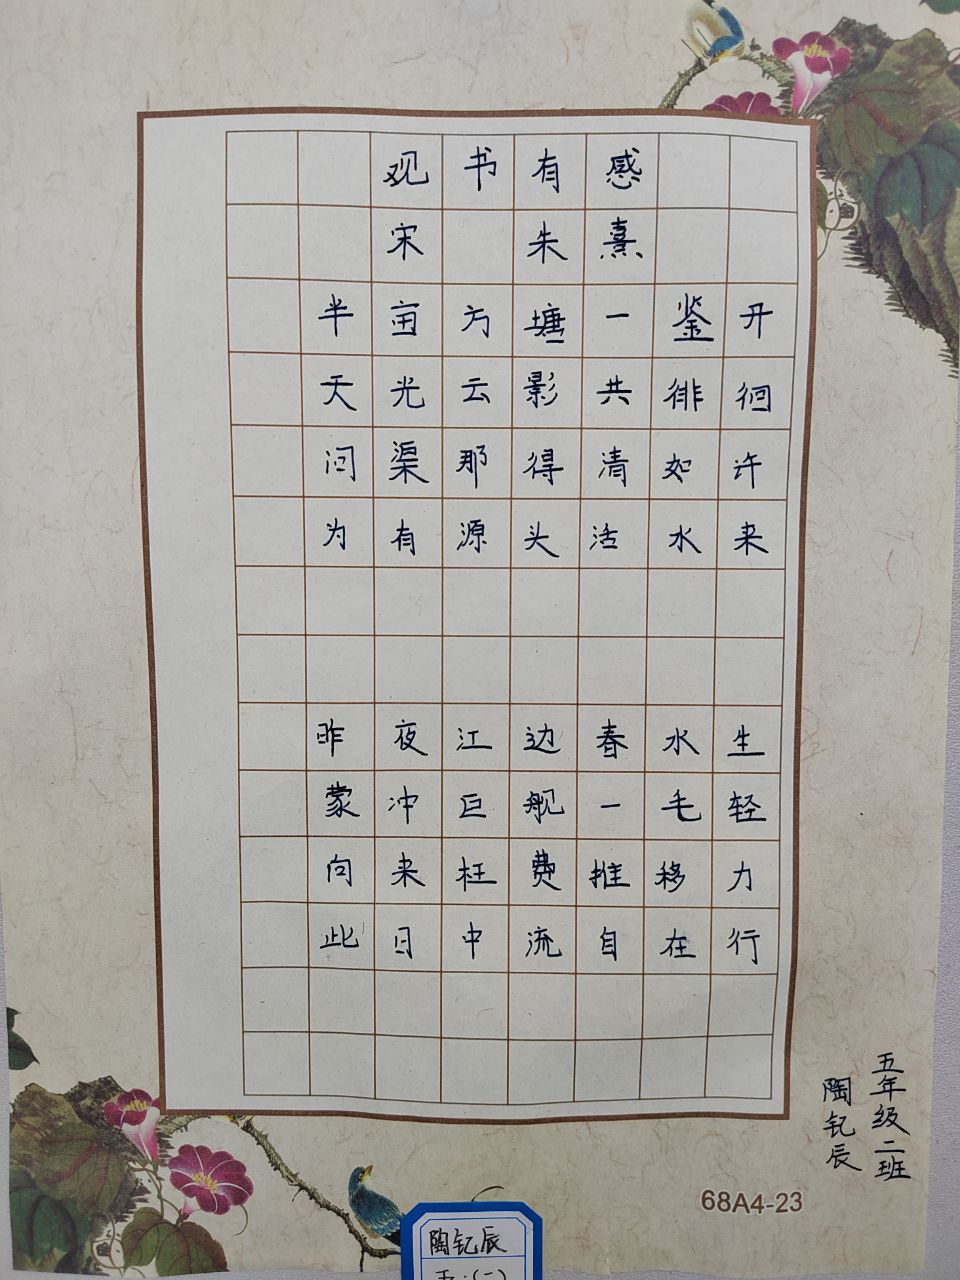 观书有感
宋 朱熹
半亩方塘一鉴开
天光云影共徘徊
问渠那得清如许
为有源头活水来
昨夜江边春水生
蒙冲巨舰一毛轻
向来枉费推移力
此日中流自在行
五年级二班
陶钇辰
68A4-23
陶钇辰
五·(二)